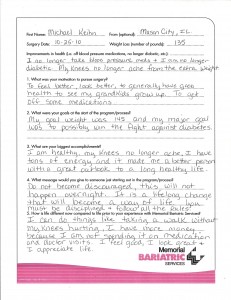 First Name: Michael Keihn From (optional): Mason City, IL
Surgery Date: 10-25-10 Weight Loss (number of pounds): 135
Improvements in health (i.e. off blood pressure medications, no longer diabetic, etc.)
I no longer take blood pressure meds & I am no longer
diabetic. My knees no longer ache from the extra weight.
1. What was your motivation to pursue surgery?
To feel better, look better, to generally have great
health to see my grandkids grow up. To get
off some medications.
2. What were your goals at the start of the program/process?
My goal weight was 195 and my major goal
was to possibly win the fight against diabetes.
3. What are your biggest accomplishments?
I am healthy, my knees no longer ache, I have
tons of energy and it made me a better person
with a great outlook to a long healthy life.
4. What message would you give to someone just starting out in the program/process?
Do not become discouraged, this will not
happen overnight. It is a lifelong change
that will become a way of life. You
must be disciplined & follow all the rules!
5. How is life different now compared to life prior to your experience with Memorial Bariatric Services?
I can do things like taking a walk without
my knees hurting, I have more money
because I am not spending it on medication
and doctor visits. I feel good, I look great &
I appreciate life.
Memorial
BARIATRIC
SERVICES